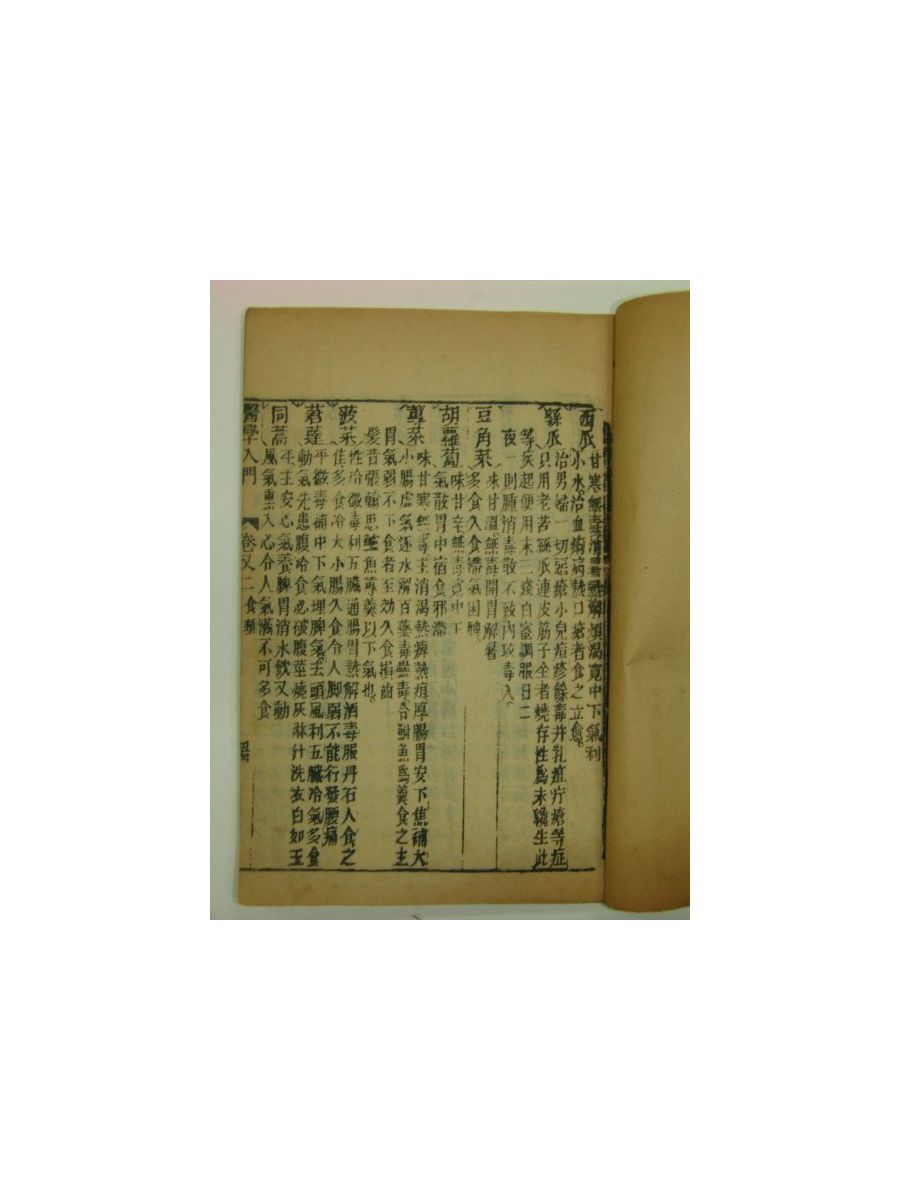 西瓜 甘寒無毒清暑熱解煩渴寬中下氣利
小水治血痢病熱口瘡者食之立愈
絲瓜 治男婦一切惡瘡小兒痘疹餘毒并乳疽疔瘡等症
只用老苦絲瓜連皮筋子全者燒存性為末
等 炙起便用末三錢白蜜調服日二
夜一則腫消毒散不致內攻毒入
豆角菜 味甘溫無毒開胃解暑
多食久食滯氣困脾
胡蘿蔔 味甘辛無毒寬中下
氣散胃中宿食邪滯
蓴菜 味甘寒無毒主消渴熱痺熱疽厚腸胃安下焦補大
小腸虛氣逐水解百藥毒蠱毒合鮒魚為羹食之主
胃氣弱不下食者至効久食損齒
髮昔張翰思鱸魚蓴羹以下氣也
菠菜 性冷微毒利五臟通腸胃熱解酒毒服丹石人食之
佳多食冷大小腸久食令人脚弱不能行發腰痛
莙薘 平微毒補中下氣理脾氣去頭風利五臟冷氣多食
動氣先患腹冷食必破腹莖燒灰淋汁洗衣白如玉
同蒿 平主安心氣養脾胃消水飲又動
風氣熏人心令人氣滿不可多食
醫學入門 卷又二 食類